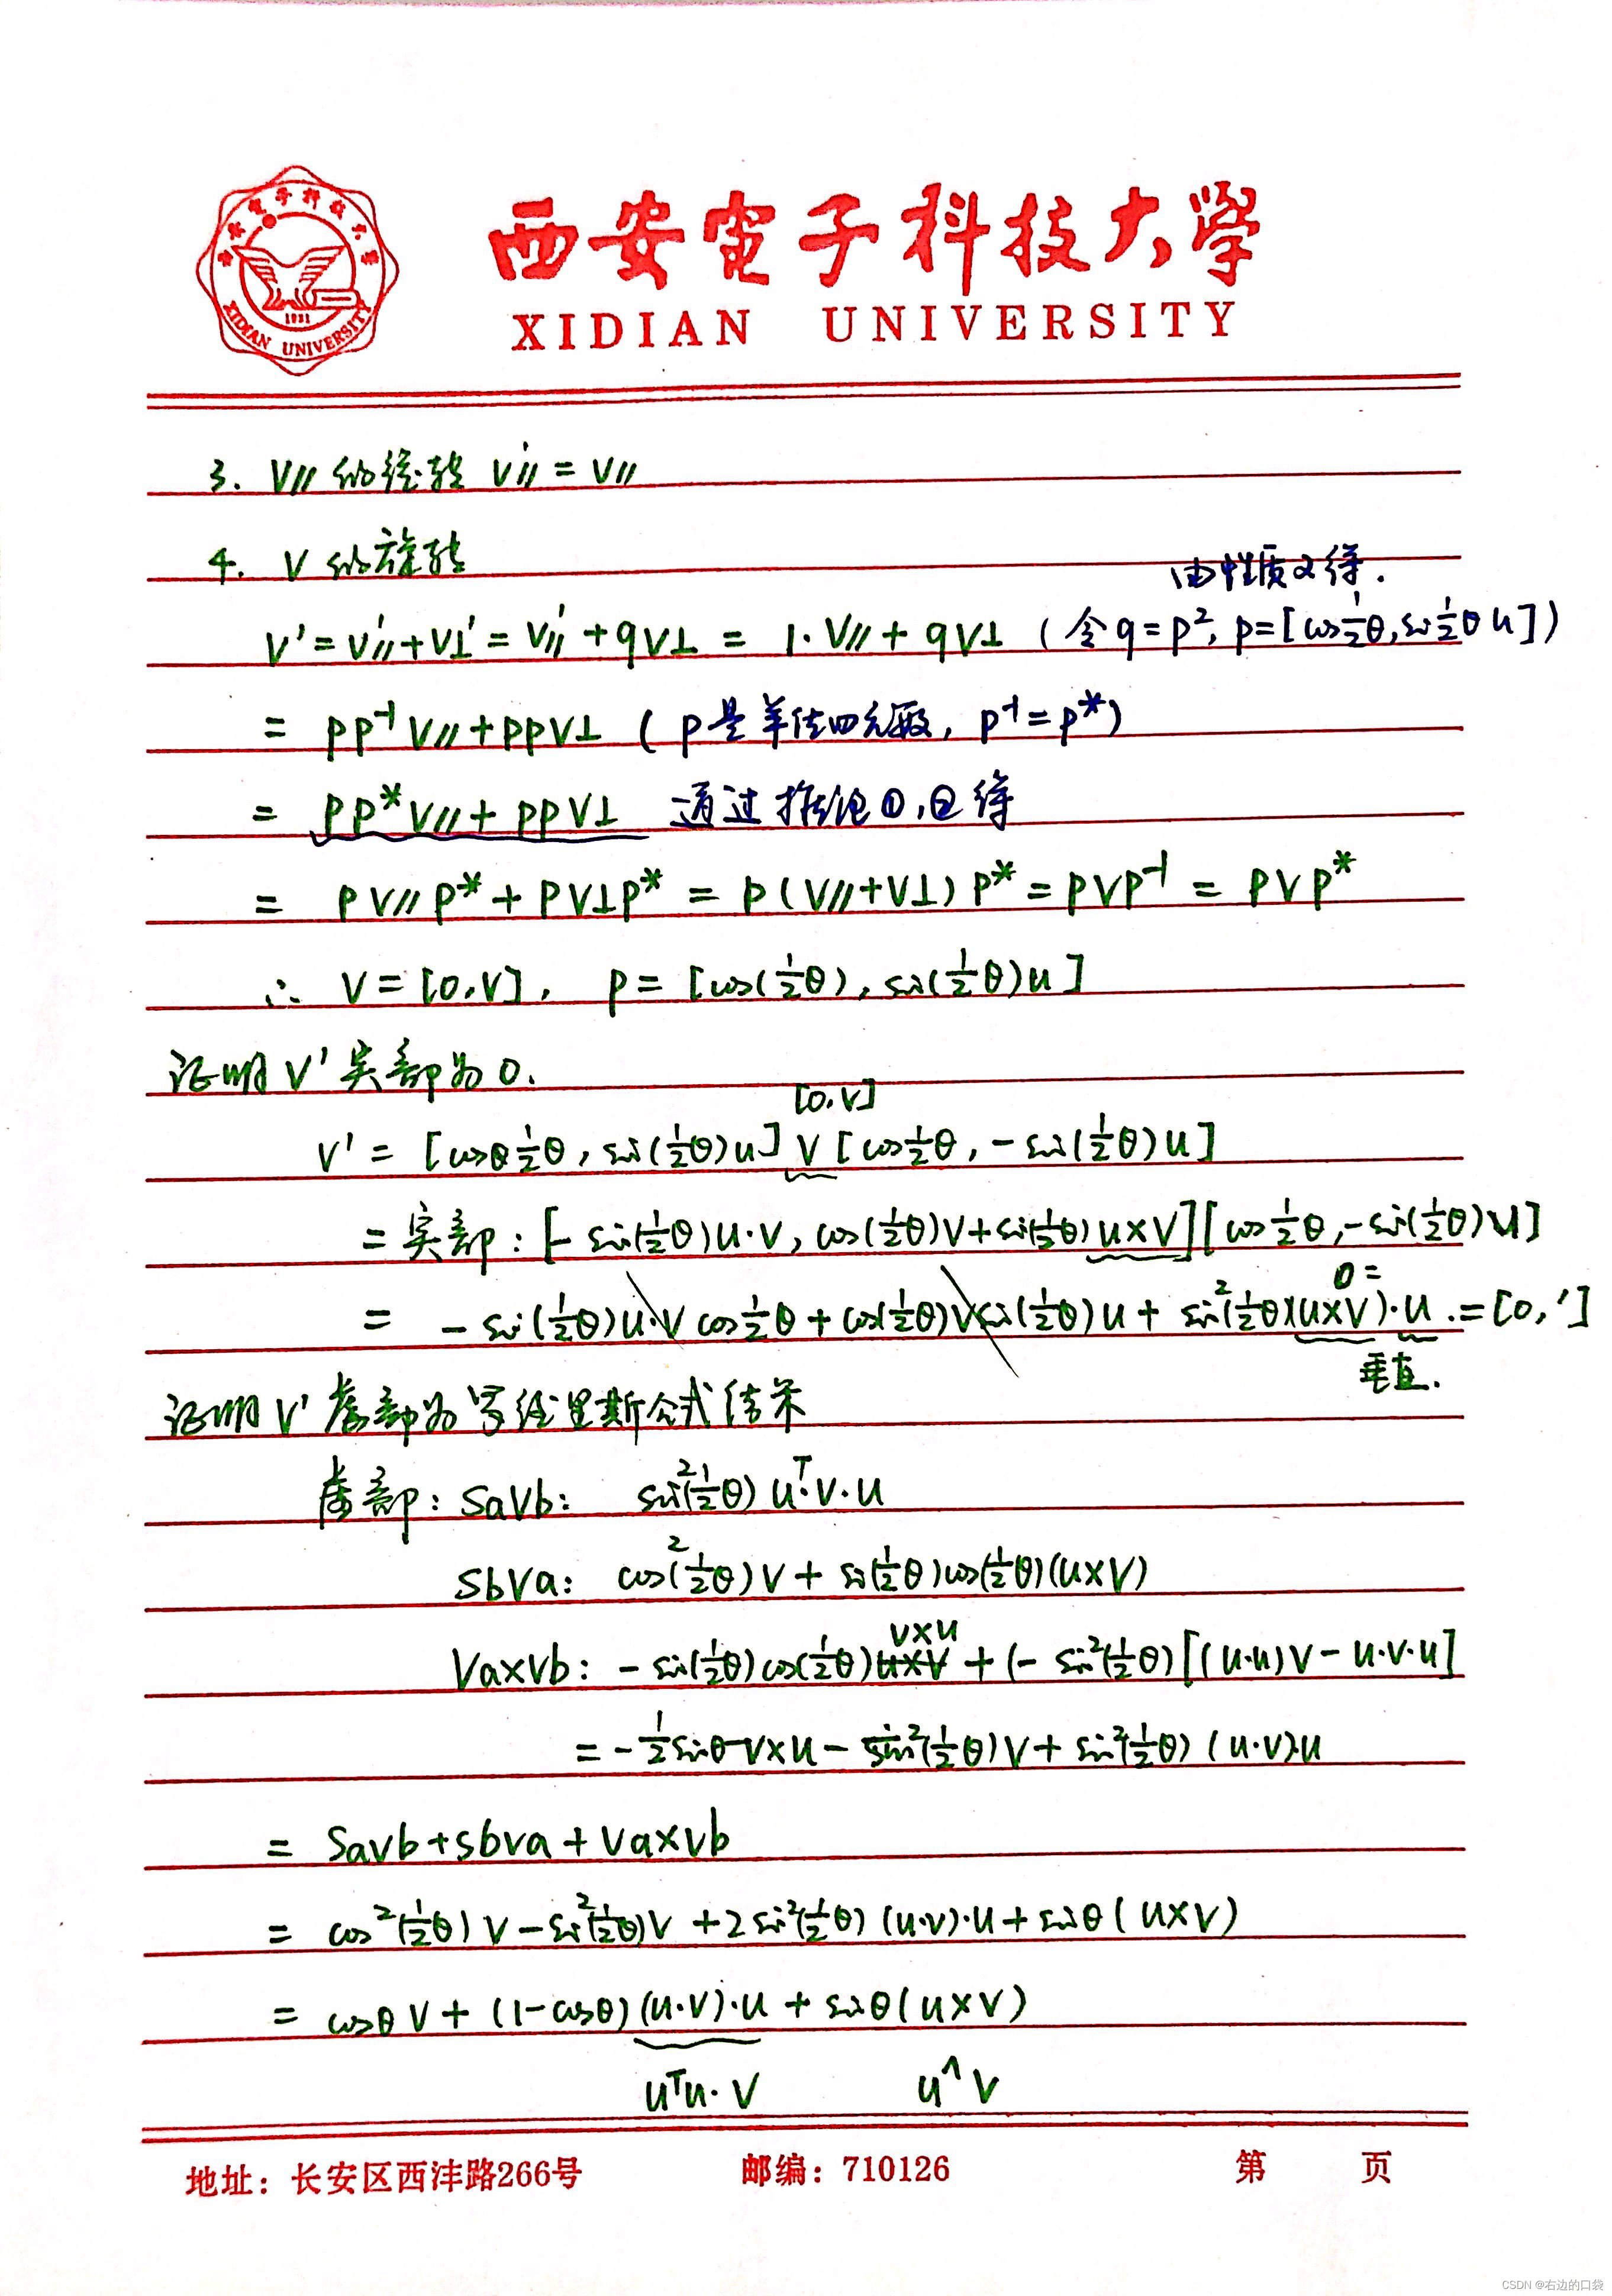 西安電子科技大學
XIDIAN UNIVERSITY
1931
XIDIAN UNIVERSITY
3. V∥ 的旋转 V∥' = V∥
4. V 的旋转
由性质2得.
V' = V∥' + V⊥' = V∥' + qV⊥ = 1·V∥ + qV⊥ (令 q = p², p = [cos½θ, sin½θ u])
= pp⁻¹V∥ + ppV⊥ (p是单位四元数, p⁻¹ = p*)
= pp*V∥ + ppV⊥ 通过推论①,②得
= pV∥p* + pV⊥p* = p(V∥+V⊥)p* = pVp⁻¹ = pVp*
∴ V = [0,V], p = [cos(½θ), sin(½θ)u]
证明 V' 实部为0.
[0,V]
V' = [cosθ½θ, sin(½θ)u] V [cos½θ, -sin(½θ)u]
= 实部: [-sin(½θ)u·V, cos(½θ)V + sin(½θ) u×V][cos½θ, -sin(½θ)u]
0 =
= -sin(½θ)u·V cos½θ + cos(½θ)V sin(½θ)u + sin²(½θ)(u×V)·u .= [0,']
垂直.
证明 V' 虚部为罗德里斯公式结果
虚部: SaVb: sin²(½θ) uᵀ·V·u
SbVa: cos²(½θ)V + sin(½θ)cos(½θ)(u×V)
V×u
Va×Vb: -sin(½θ)cos(½θ) u×V + (-sin²(½θ)[(u·u)V - u·V·u]
= -½sinθ V×u - sin²(½θ)V + sin²(½θ)(u·V)·u
= SaVb + SbVa + Va×Vb
= cos²(½θ)V - sin²(½θ)V + 2sin²(½θ)(u·V)·u + sinθ(u×V)
= cosθ V + (1-cosθ)(u·V)·u + sinθ(u×V)
uᵀu·V u^V
地址：长安区西沣路266号 邮编：710126 第 页
CSDN @右边的口袋